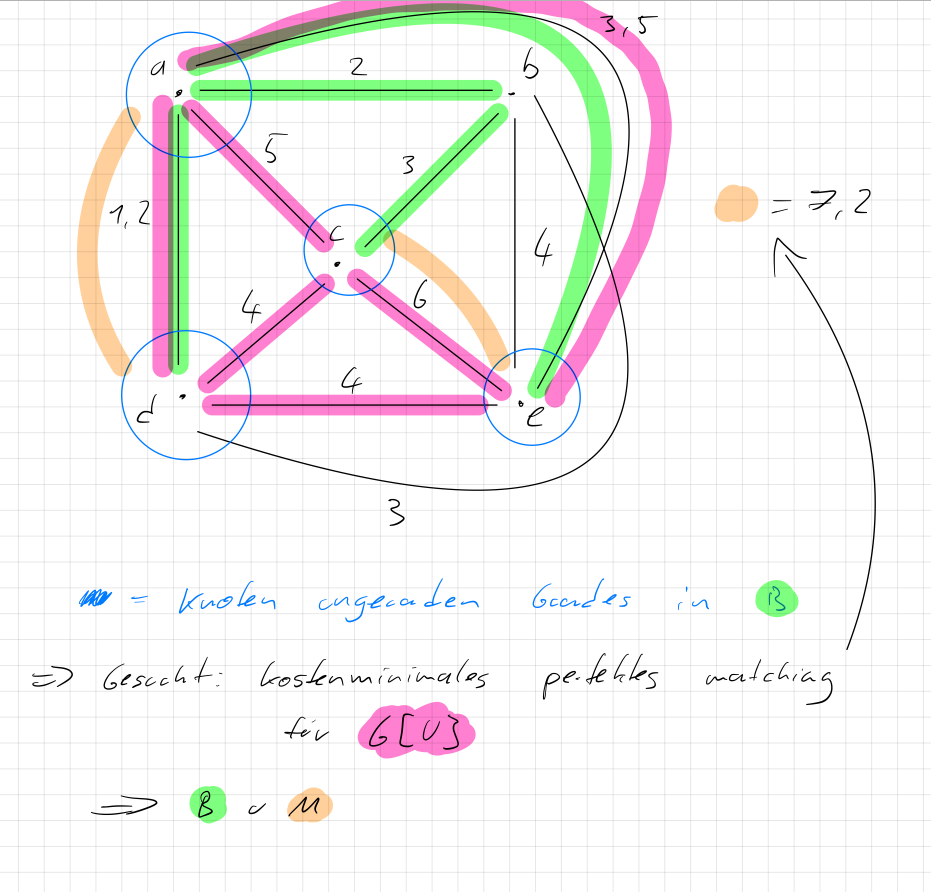 3,5
a
2
b
5
3
1,2
c
= 7,2
4
4
6
4
d
e
3
= Knoten ungeraden Grades in B
=> Gesucht: kostenminimales perfektes matching
für G[U]
=> B ∪ M